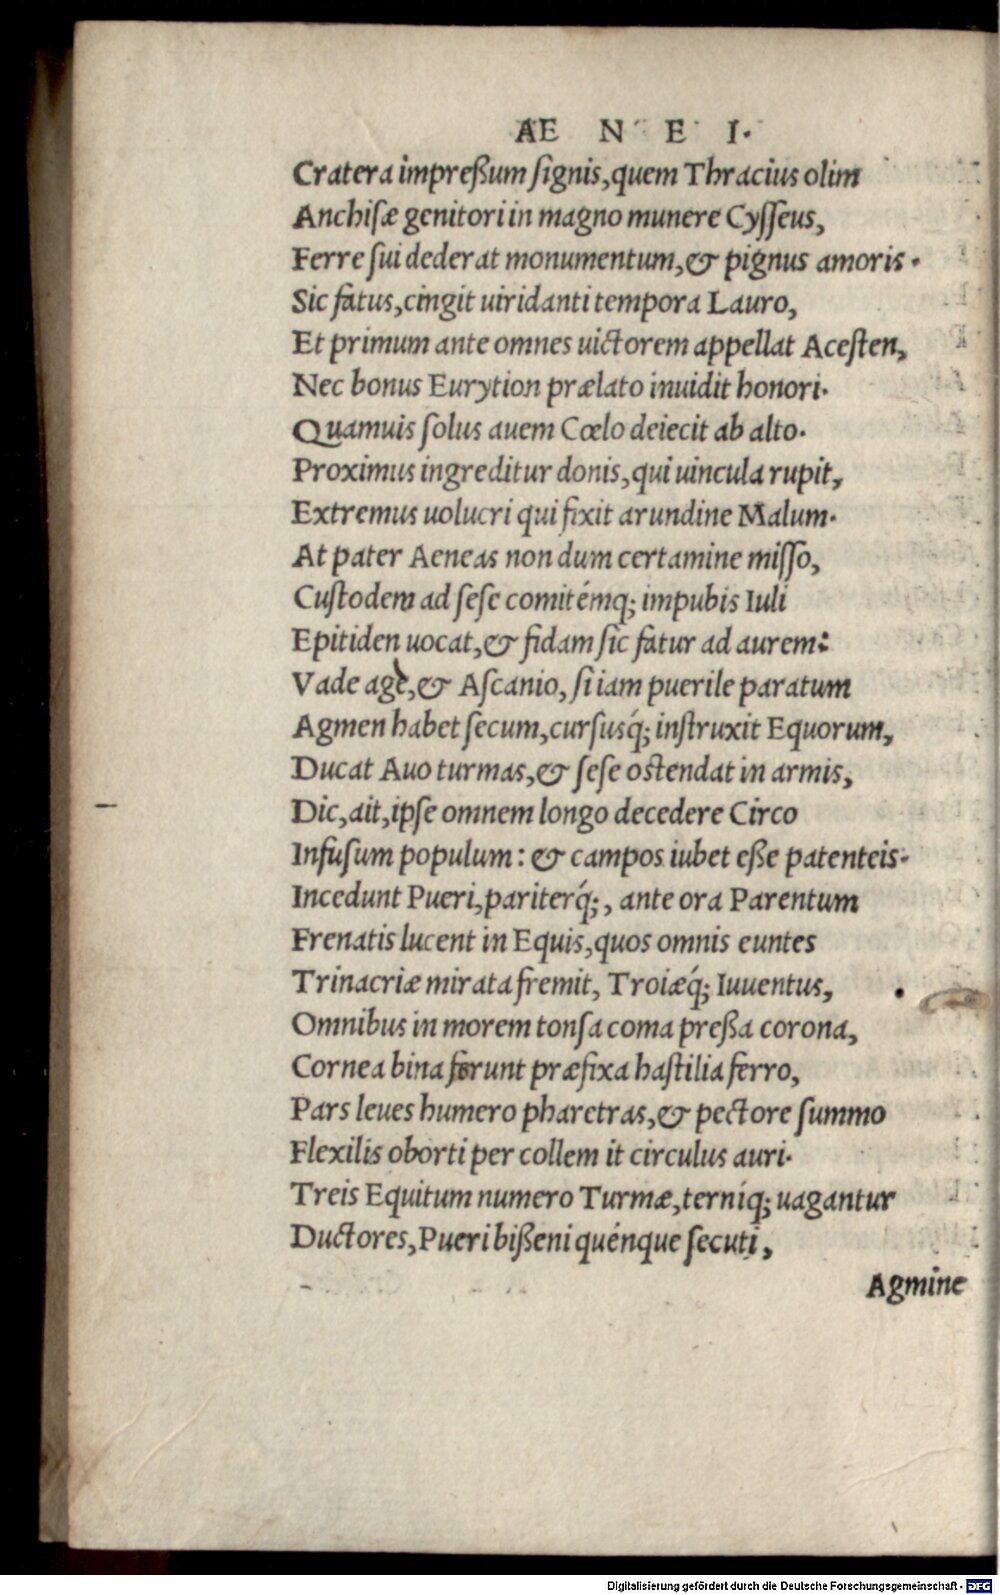 AE N E I.
Cratera impreßum ſignis,quem Thracius olim
Anchiſæ genitori in magno munere Cyſſeus,
Ferre ſui dederat monumentum,& pignus amoris.
Sic fatus,cingit uiridanti tempora Lauro,
Et primum ante omnes uictorem appellat Aceſten,
Nec bonus Eurytion prælato inuidit honori.
Quamuis ſolus auem Cœlo deiecit ab alto.
Proximus ingreditur donis,qui uincula rupit,
Extremus uolucri qui fixit arundine Malum.
At pater Aeneas non dum certamine miſſo,
Cuſtodem ad ſeſe comitémq; impubis Iuli
Epitiden uocat,& fidam ſic fatur ad aurem:
Vade age,& Aſcanio, ſi iam puerile paratum
Agmen habet ſecum,curſusq́; inſtruxit Equorum,
Ducat Auo turmas,& ſeſe oſtendat in armis,
Dic,ait,ipſe omnem longo decedere Circo
Infuſum populum: & campos iubet eße patenteis.
Incedunt Pueri,pariterq́;, ante ora Parentum
Frenatis lucent in Equis,quos omnis euntes
Trinacriæ mirata fremit, Troiæq́; Iuuentus,
Omnibus in morem tonſa coma preßa corona,
Cornea bina ferunt præfixa haſtilia ferro,
Pars leues humero pharetras,& pectore ſummo
Flexilis oborti per collem it circulus auri.
Treis Equitum numero Turmæ,terníq; uagantur
Ductores,Pueri bißeni quénque ſecuti,
Agmine
Digitalisierung gefördert durch die Deutsche Forschungsgemeinschaft - DFG